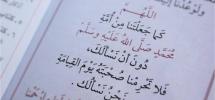 اللَّهُمَّ
كَمَا جَعَلْتَنَا مِنْ أُمَّةِ
مُحَمَّدٍ صَلَّى اللهُ عَلَيْهِ وَسَلَّمَ
دُونَ أَنْ نَسْأَلَكَ،
فَلَا تَحْرِمْنَا صُحْبَتَهُ يَوْمَ الْقِيَامَةِ
نَحْنُ نَسْأَلُكَ